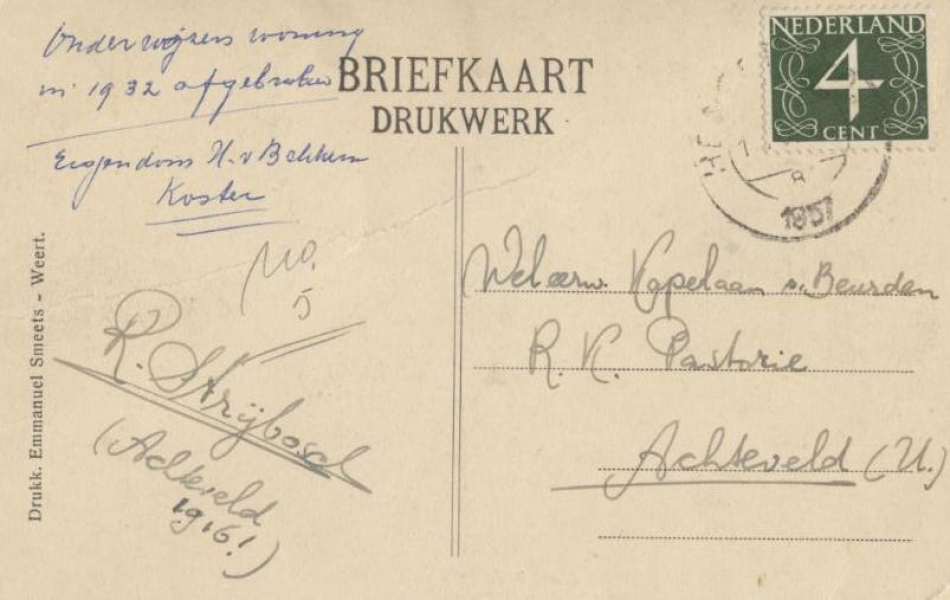 Onderwijzers woning
in 1932 afgebroken
Eigendom H. v Bekkum
Koster
BRIEFKAART
DRUKWERK
NEDERLAND
4
CENT
1957
no.
5
R. Strijbosch
(Achteveld
1916!)
Drukk. Emmanuel Smeets - Weert.
Weleerw. Kapelaan v. Beurden
R. K. Pastorie
Achteveld (U.)